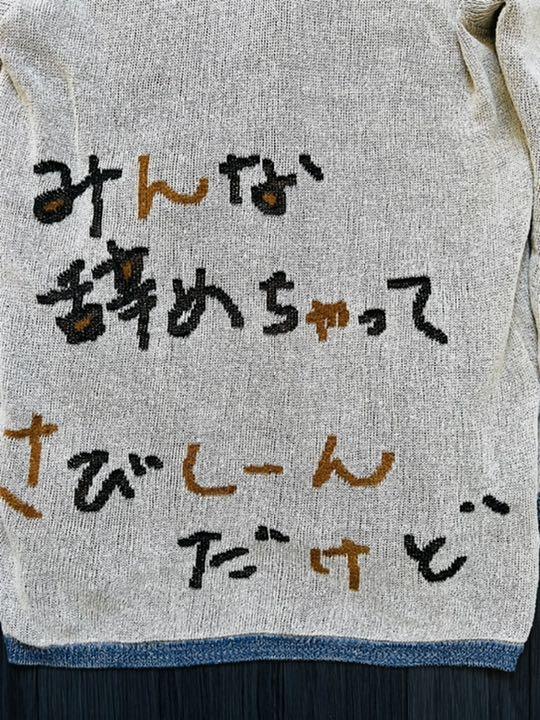 みんな
辞めちゃって
さびしーん
だけど